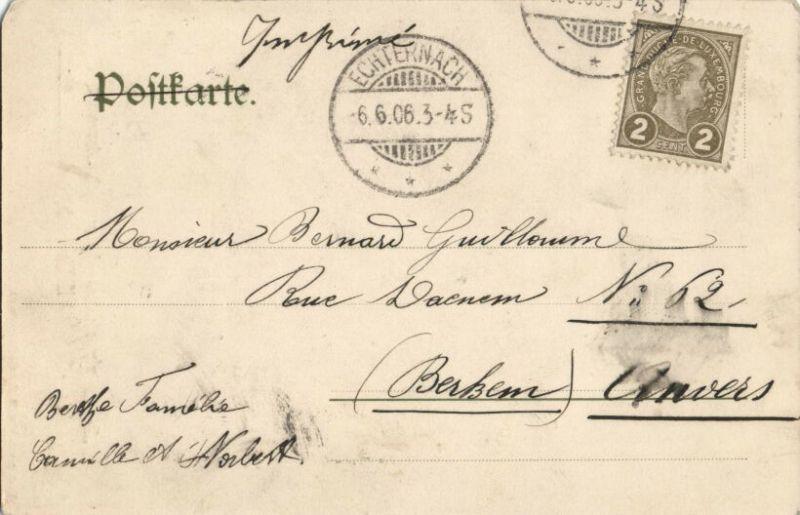 Imprimé
Postkarte.
ECHTERNACH
-6.6.06.3-4S
3-4S
GRAND DUCHÉ DE LUXEMBOURG
2 CENT. 2
Monsieur Bernard Guillaume
Rue No 62.
(Berchem) Anvers
Famille
Camille et Norbert